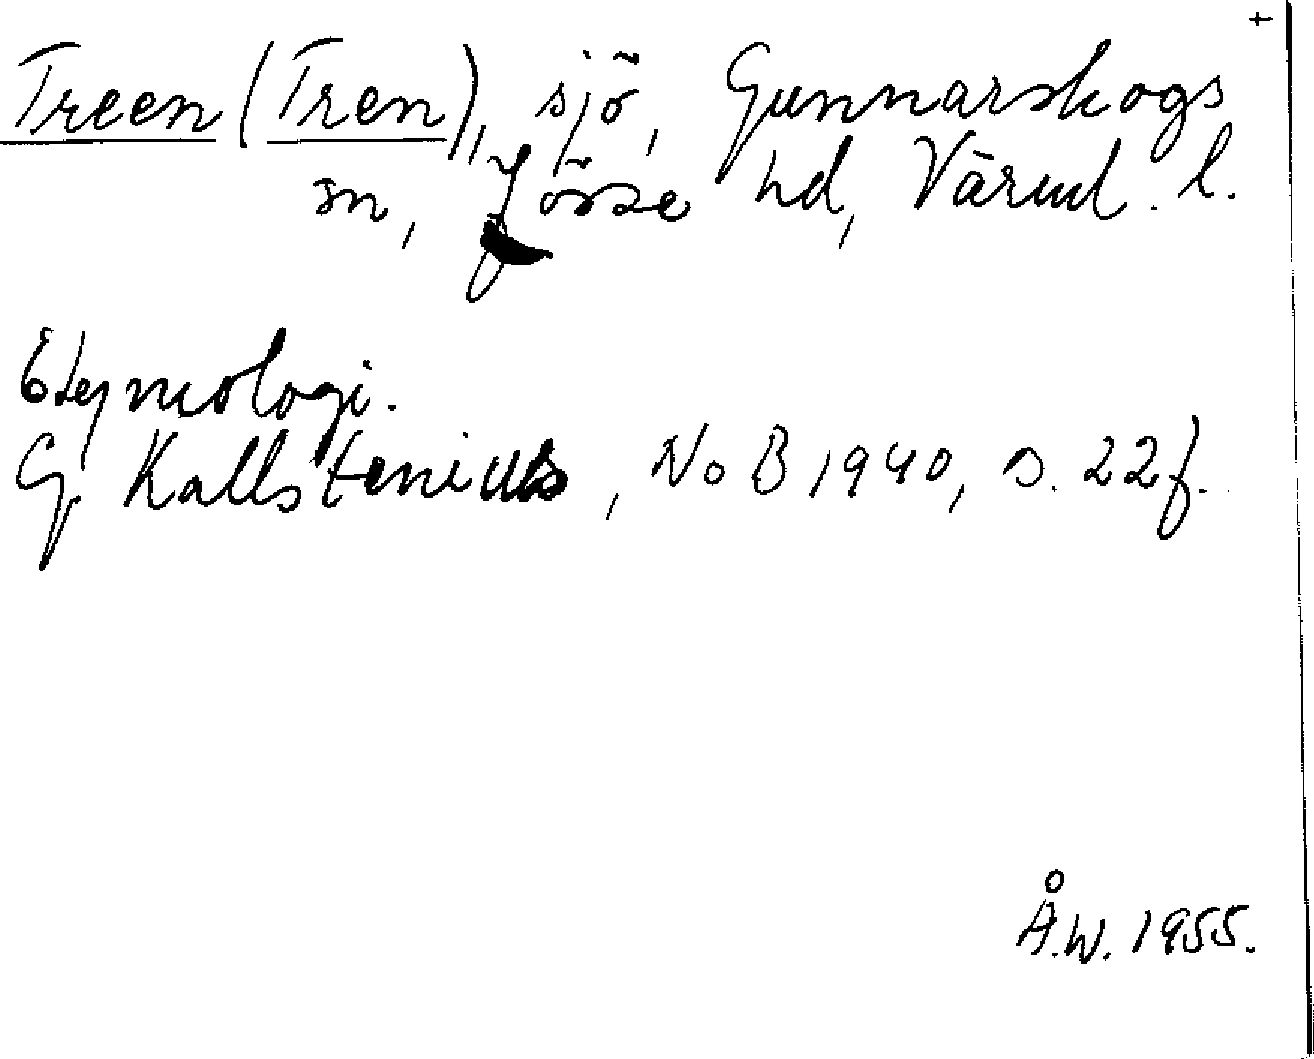 +
Treen (Tren), sjö, Gunnarskogs
sn, Jösse hd, Värml. l.
Etymologi.
G. Kallstenius, NoB 1940, s. 22 f.
Å.W. 1955.